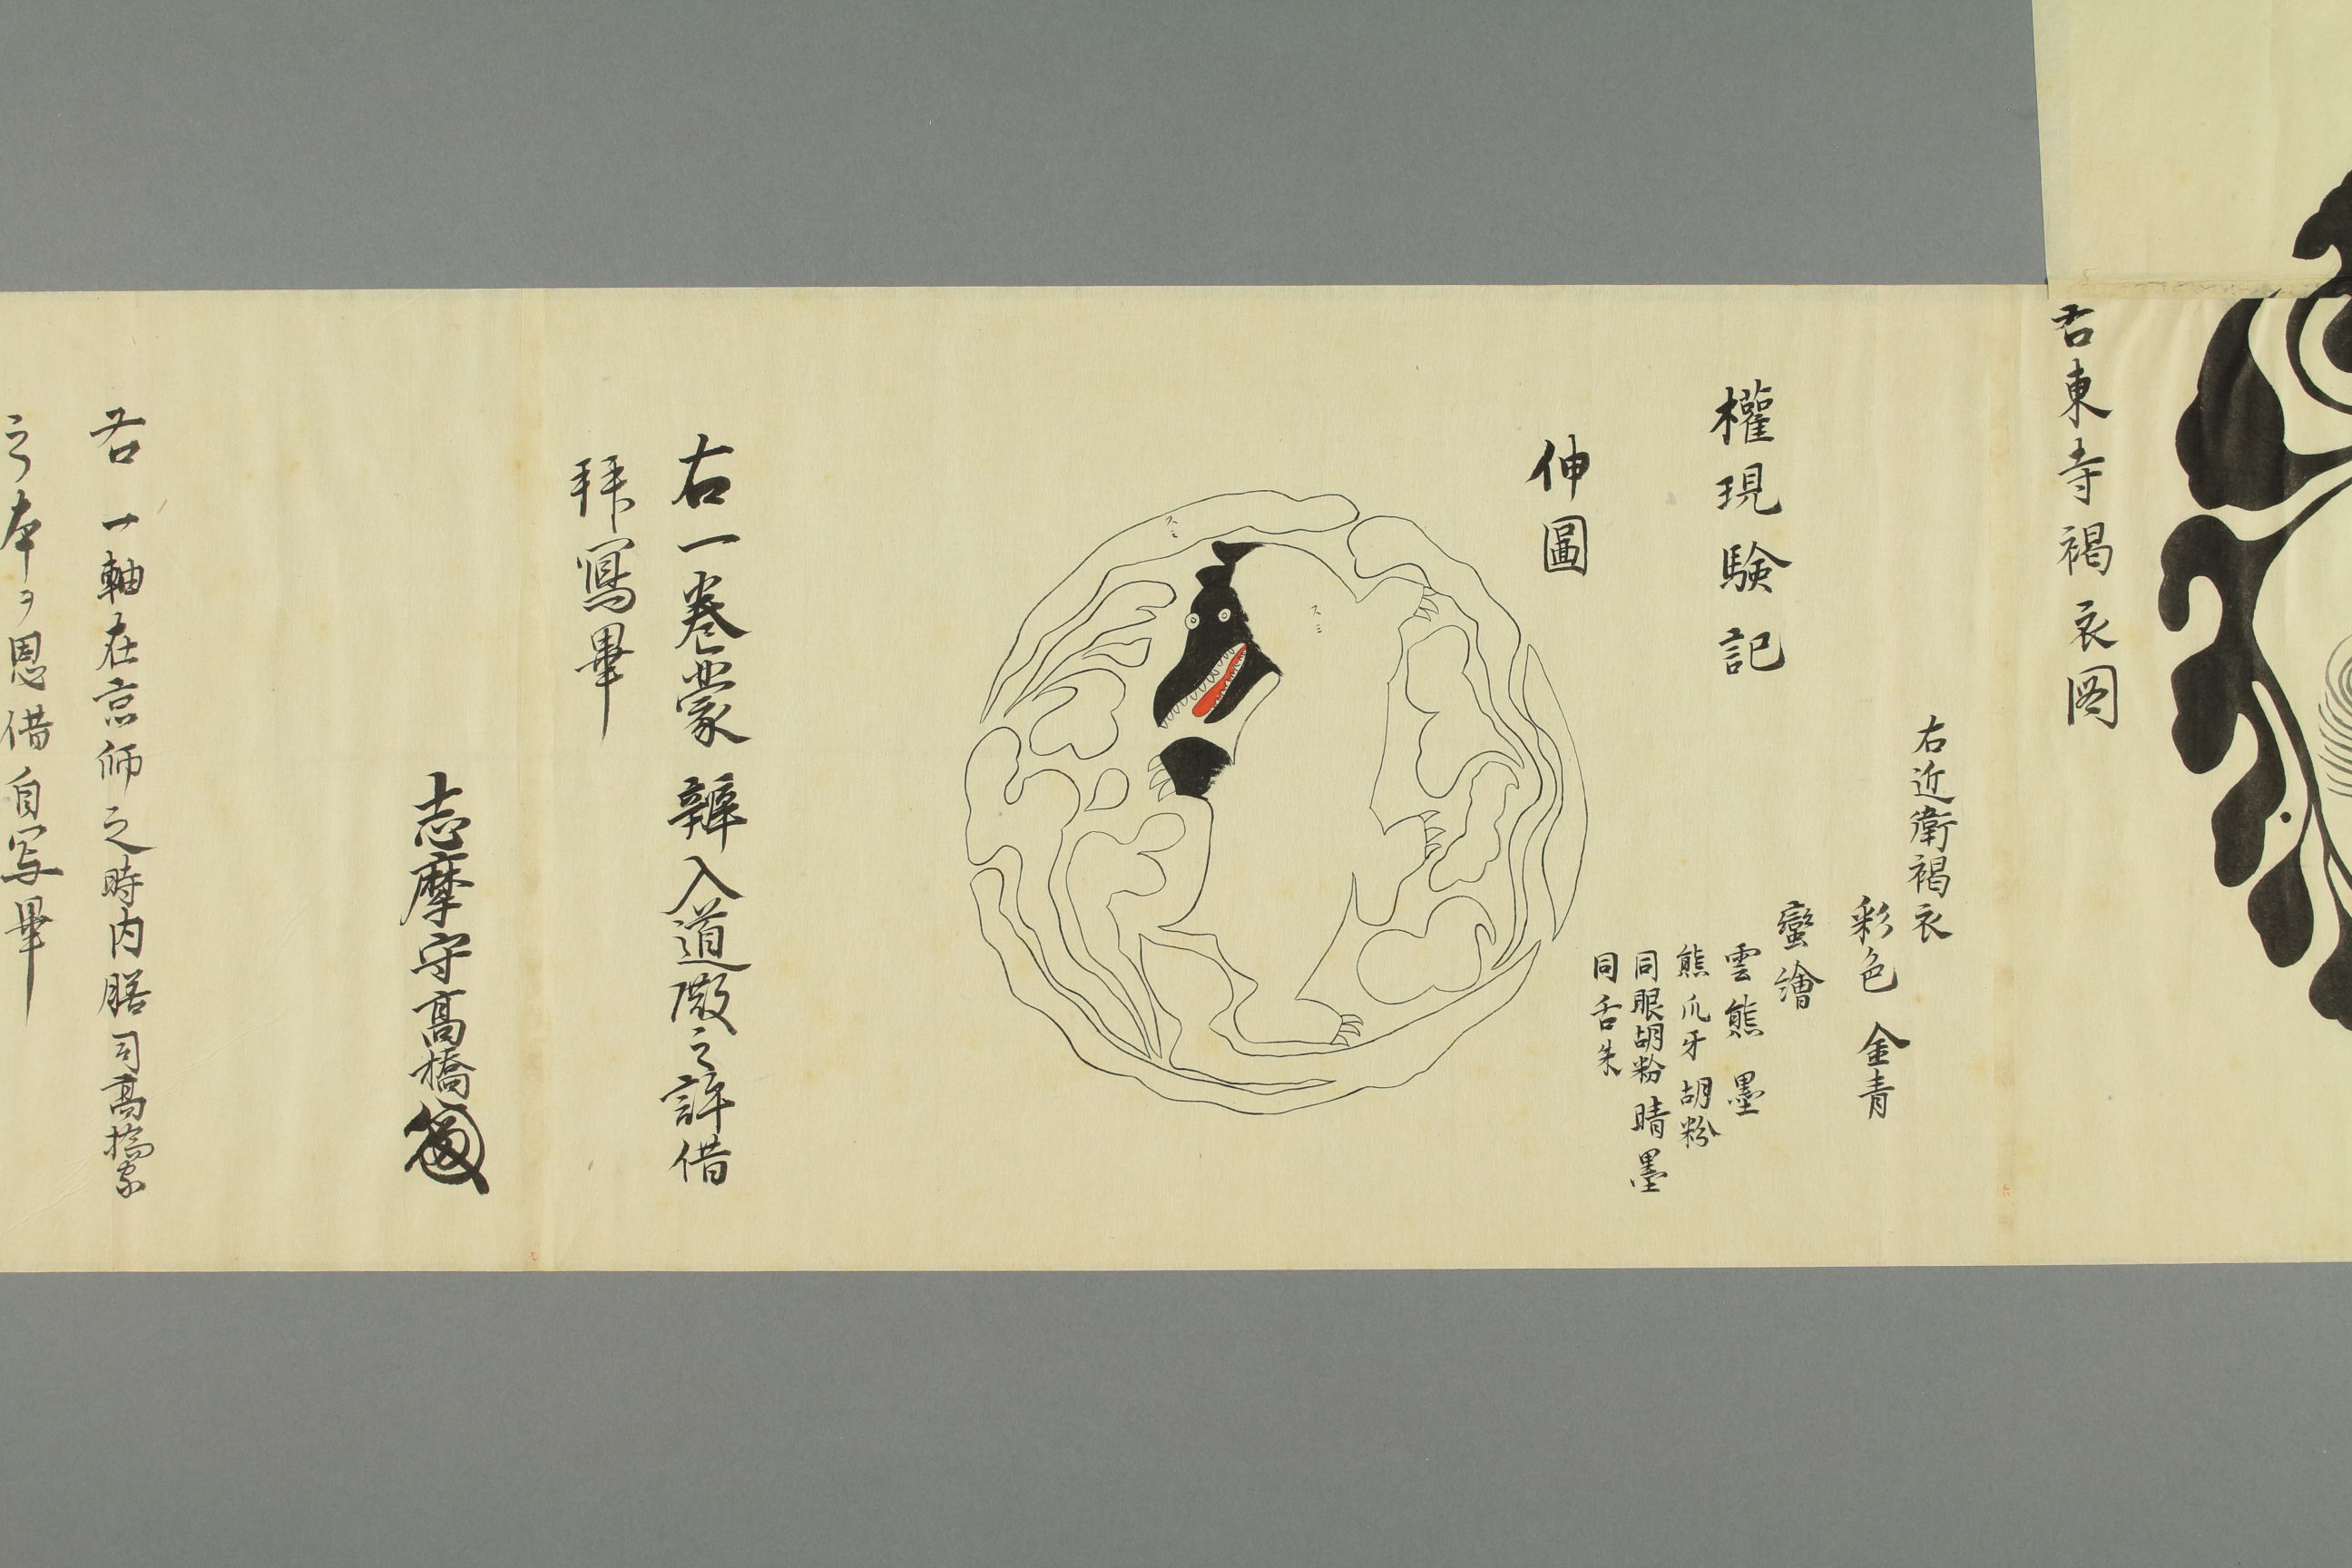 右東寺褐衣図
右近衛褐衣
彩色 金青
蠻繪
雲熊 墨
熊爪牙 胡粉
同眼胡粉 睛墨
同舌朱
權現験記
伸圖
スミ
スミ
右一卷蒙 辨入道殿之許借
拜寫畢
志摩守高橋
右一軸在京師之時内膳司髙橋家
之本ヲ恩借自写畢